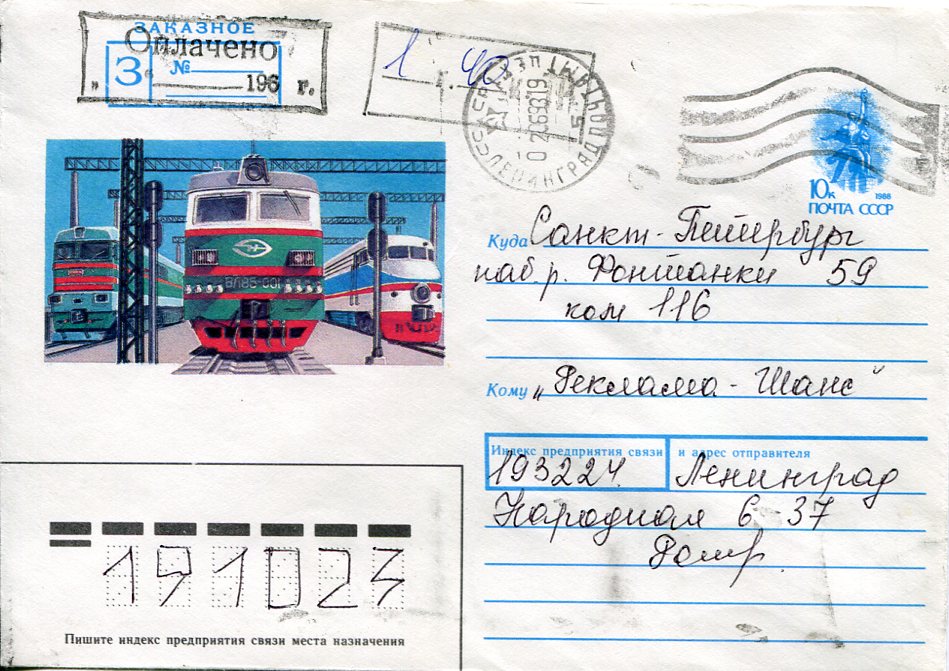 ЗАКАЗНОЕ
Оплачено
З №
" 196 г.
1 г. 40
ЛЕНИНГРАД ПОЧТАМТ
10к 1988
ПОЧТА СССР
ВЛ85-001
Куда Санкт-Петербург
наб. р. Фонтанки 59
ком 116
Кому „Реклама-Шанс"
Индекс предприятия связи и адрес отправителя
193224. Ленинград
Народная 6-37
191023
Пишите индекс предприятия связи места назначения